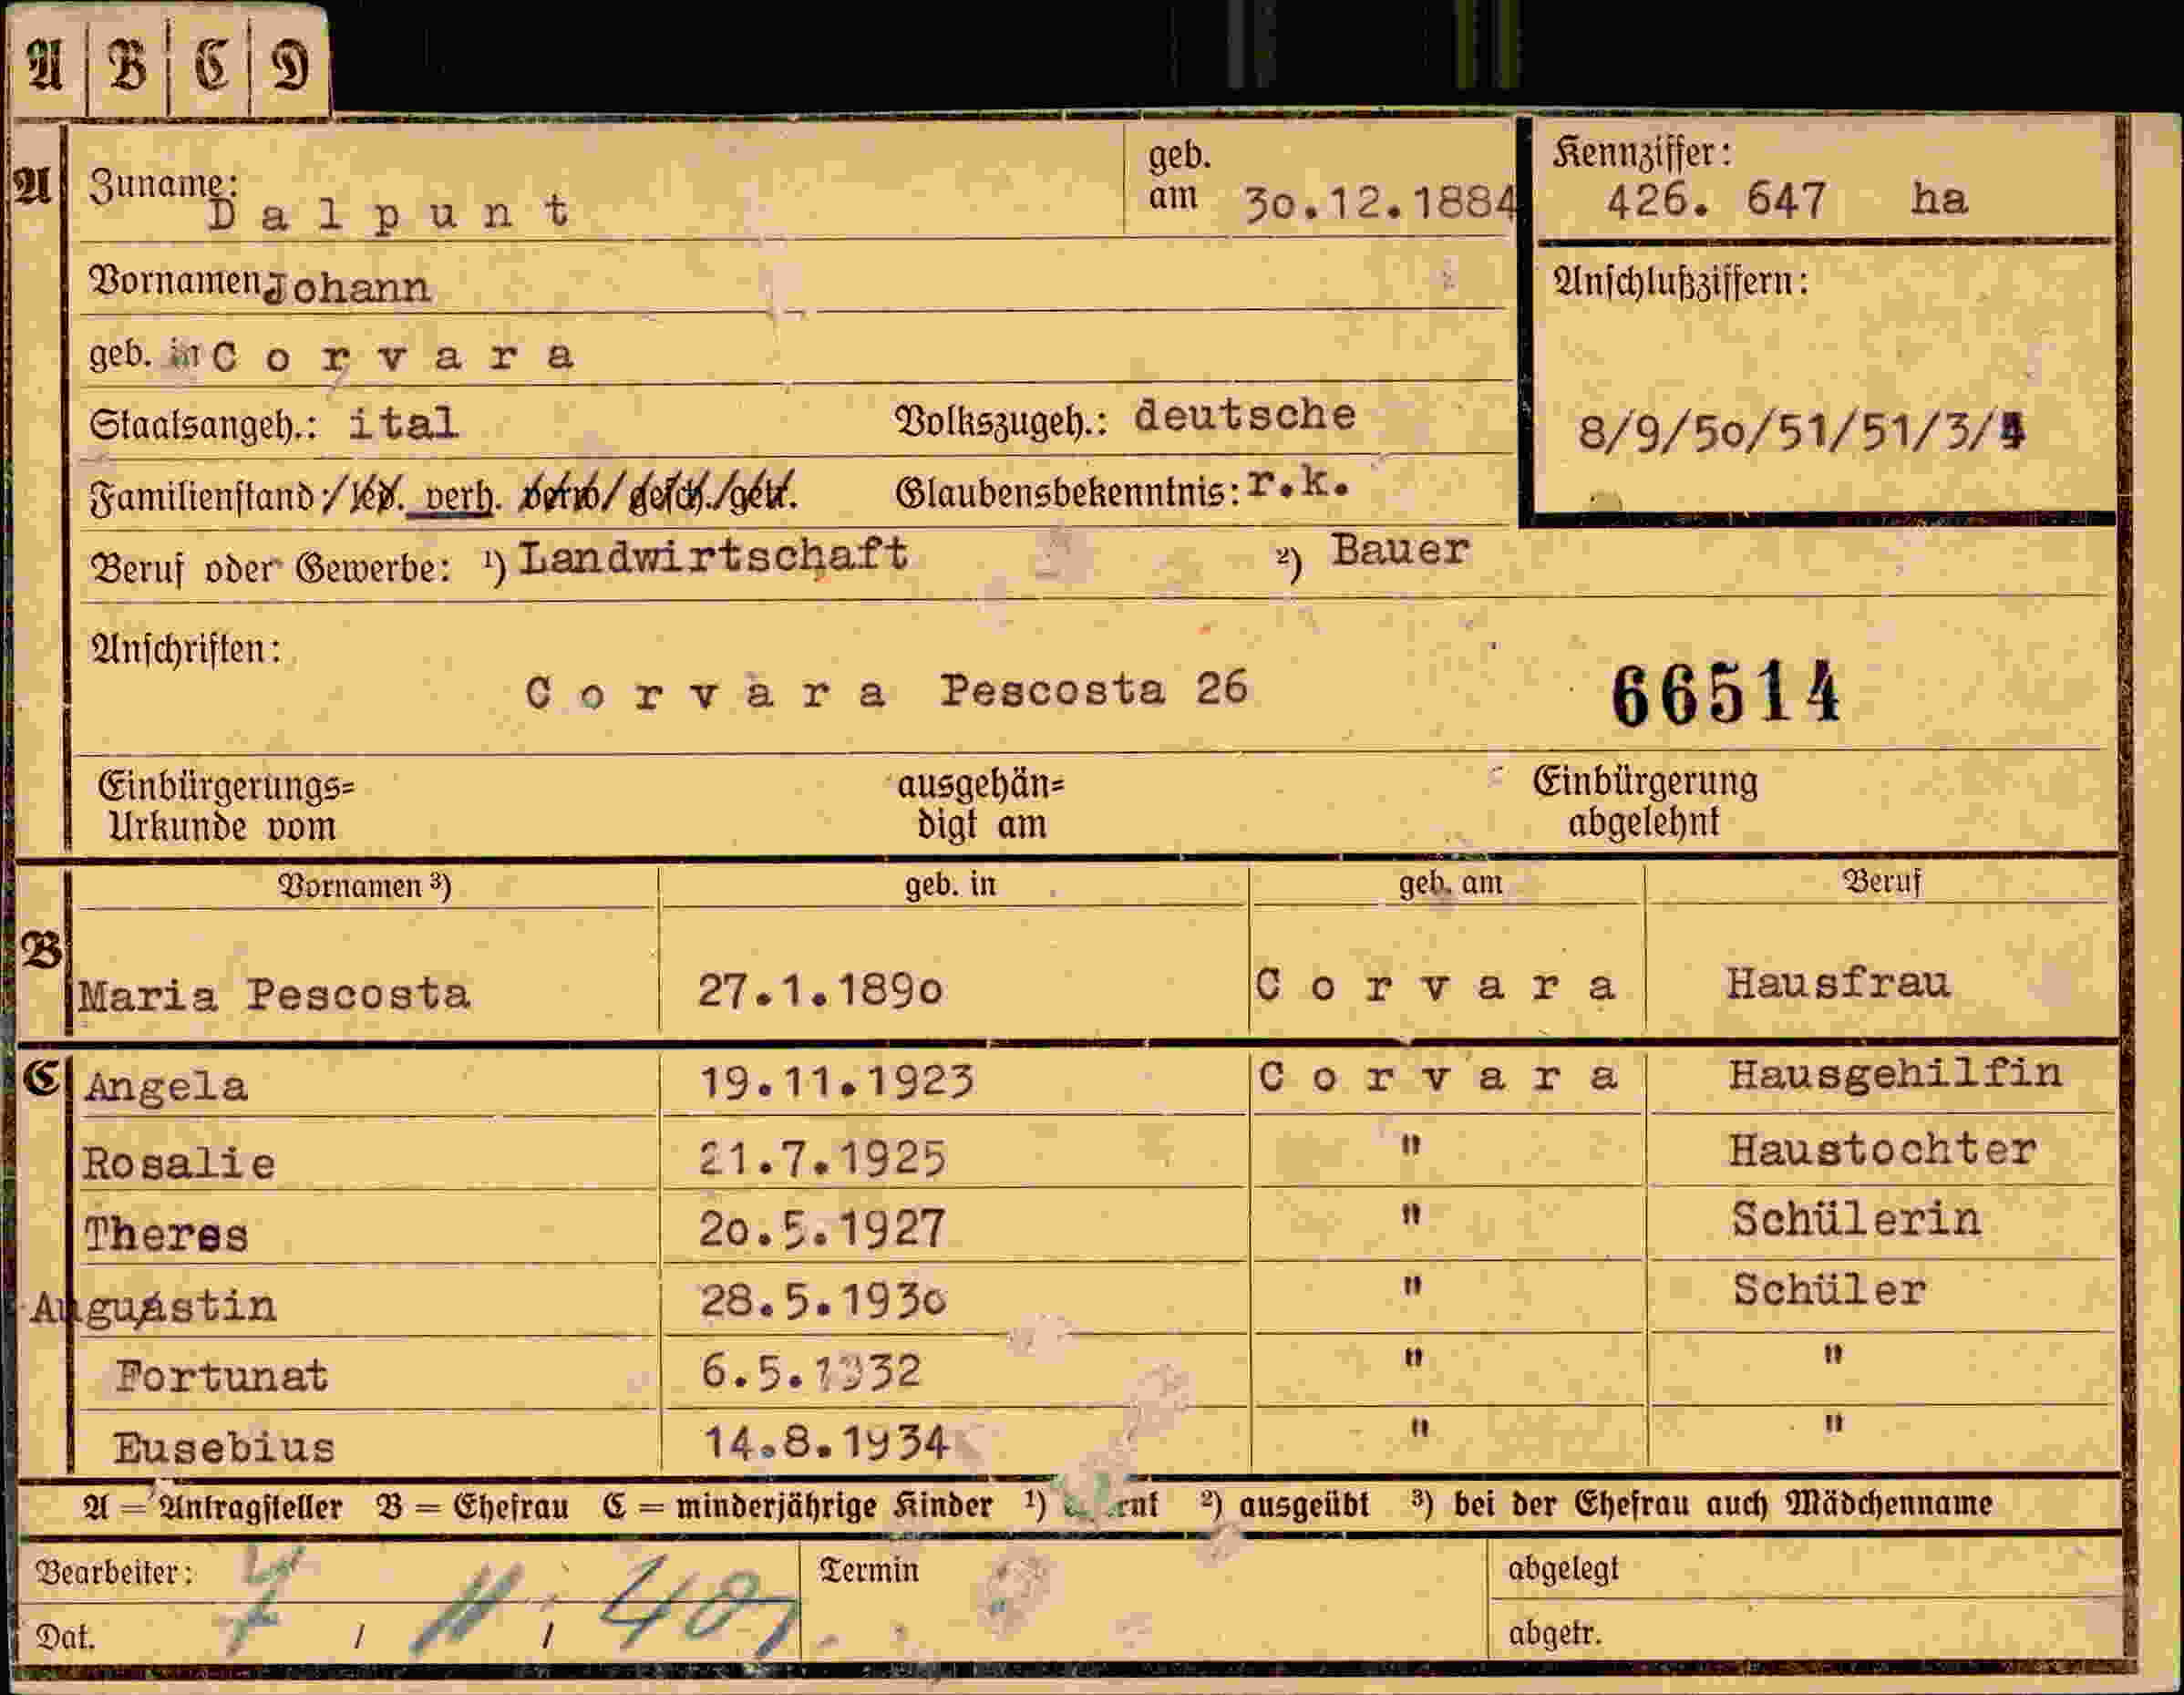 A B C D
A Zuname: Dalpunt geb. am 30.12.1884 Kennziffer: 426. 647 ha
Vornamen Johann Anschlußziffern:
geb. in Corvara
Staatsangeh.: ital Volkszugeh.: deutsche 8/9/50/51/51/3/4
Familienstand: led. verh. verw. gesch./getr. Glaubensbekenntnis: r.k.
Beruf oder Gewerbe: ¹) Landwirtschaft ²) Bauer
Anschriften:
Corvara Pescosta 26 66514
Einbürgerungs= ausgehän= Einbürgerung
Urkunde vom digt am abgelehnt
Vornamen ³) geb. in geb. am Beruf
B
Maria Pescosta 27.1.1890 Corvara Hausfrau
C Angela 19.11.1923 Corvara Hausgehilfin
Rosalie 21.7.1925 " Haustochter
Theres 20.5.1927 " Schülerin
Auguastin 28.5.1930 " Schüler
Fortunat 6.5.1932 " "
Eusebius 14.8.1934 " "
A = Antragsteller B = Ehefrau C = minderjährige Kinder ¹) ²) ausgeübt ³) bei der Ehefrau auch Mädchenname
Bearbeiter: Termin abgelegt
Dat. 7 / 11 / 40 abgetr.